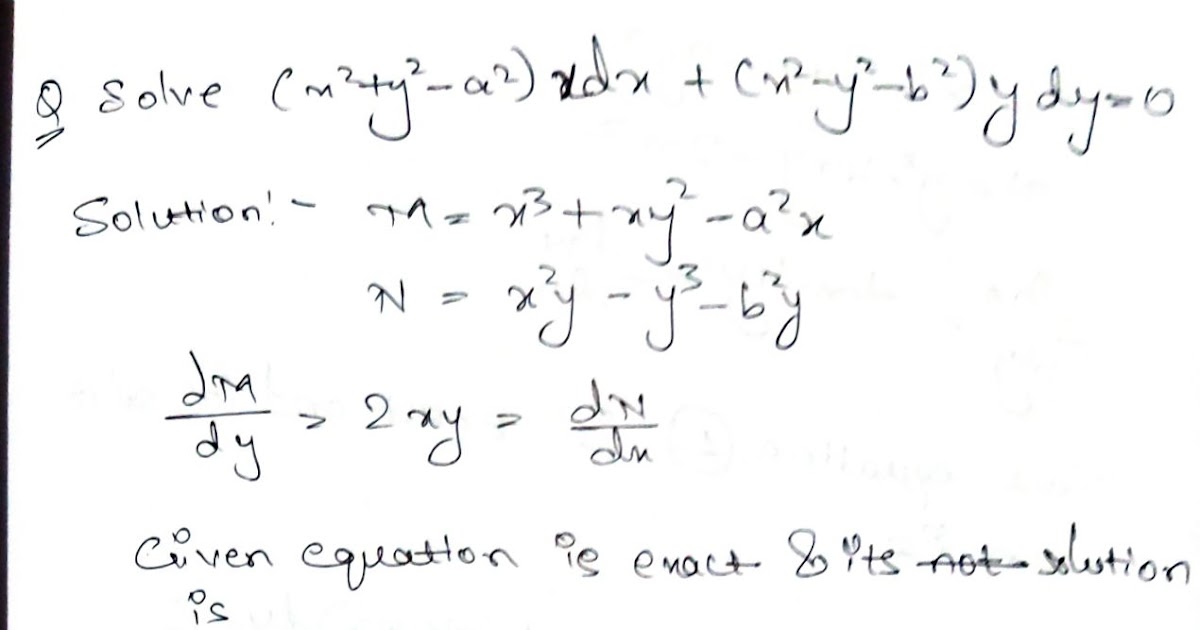 Q Solve (x²+y²-a²) xdx + (x²-y²-b²) y dy=0
Solution:- M = x³ + xy² - a²x
N = x²y - y³ - b²y
dM/dy = 2xy = dN/dx
Given equation is exact & its not solution
is